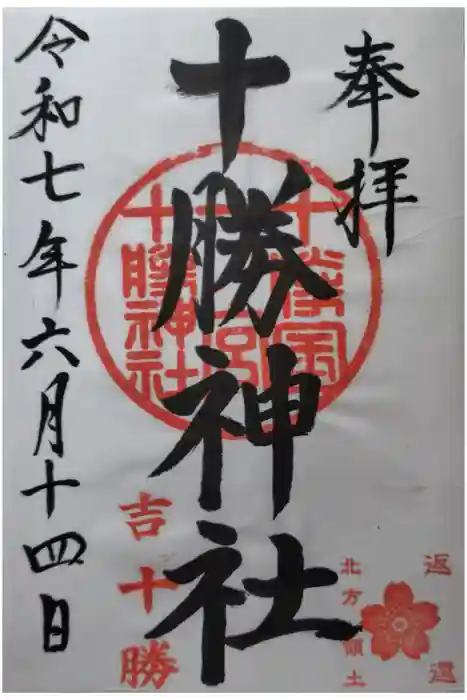 奉拝
十勝神社
令和七年六月十四日
十勝神社
吉十勝
北方領土
返還